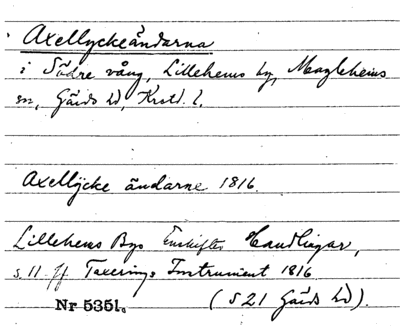 Axellyckeändarna
i Södre vång, Lillehems by, Maglehems
sn, Gärds hd, Krstd. l.
Axellÿcke ändarne 1816.
Lillehems Bys Enskiftes Handlingar,
s. 11 ff Taxerings Instrument 1816
Nr 5351. (S 21 Gärds hd).